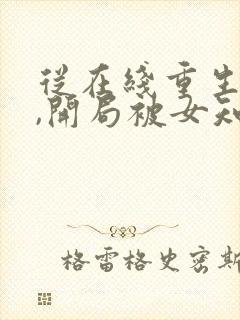 從在綫重生
,開局被女知
格雷格史密斯